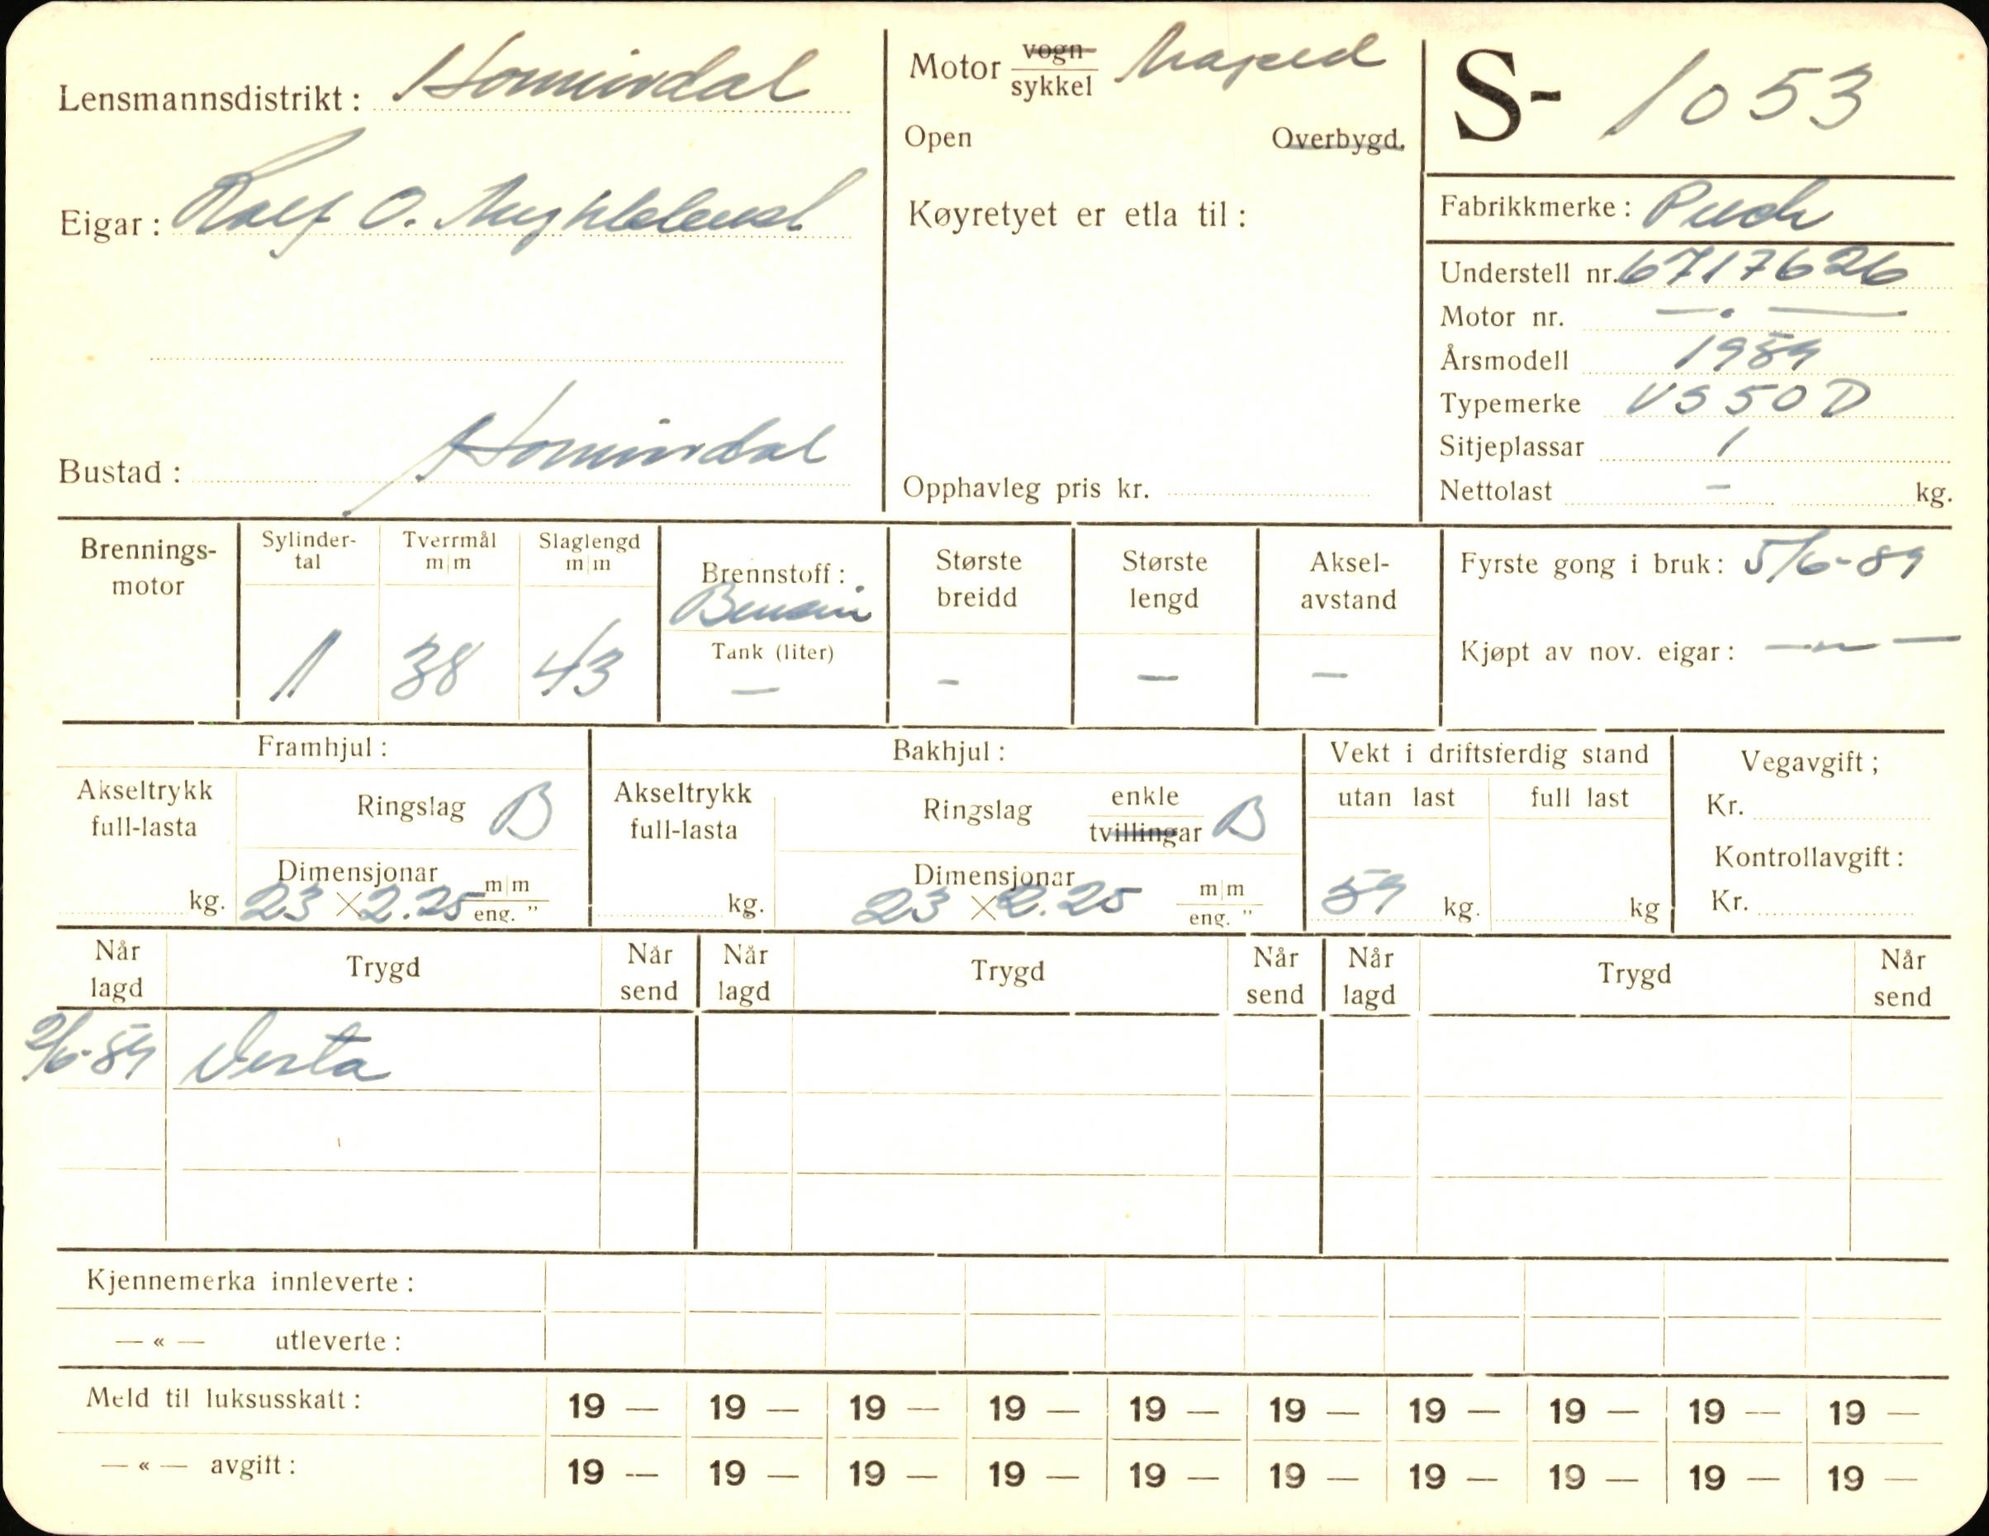 Lensmannsdistrikt: Hornindal
Eigar: Rolf O.
Bustad: Hornindal
Motor vogn sykkel Moped
Open Overbygd.
Køyretyet er etla til:
Opphavleg pris kr.
S- 1053
Fabrikkmerke: Puch
Understell nr. 6717626
Motor nr. — " —
Årsmodell 1959
Typemerke VS 50 D
Sitjeplassar 1
Nettolast - kg.
Brennings-
motor
Sylinder-
tal
1
Tverrmål
m|m
38
Slaglengd
m|m
43
Brennstoff:
Bensin
Tank (liter)
—
Største
breidd
-
Største
lengd
—
Aksel-
avstand
—
Fyrste gong i bruk: 5/6-59
Kjøpt av nov. eigar: — " —
Framhjul:
Akseltrykk
full-lasta
kg.
Ringslag B
Dimensjonar
23 × 2.25 m|m eng. "
Bakhjul:
Akseltrykk
full-lasta
kg.
Ringslag enkle tvillingar B
Dimensjonar
23 × 2.25 m|m eng. "
Vekt i driftsferdig stand
utan last full last
59 kg. kg
Vegavgift;
Kr.
Kontrollavgift:
Kr.
Når lagd Trygd Når send Når lagd Trygd Når send Når lagd Trygd Når send
2/6-59 Vesta
Kjennemerka innleverte:
— « — utleverte:
Meld til luksusskatt: 19 — 19 — 19 — 19 — 19 — 19 — 19 — 19 — 19 — 19 —
— « — avgift: 19 — 19 — 19 — 19 — 19 — 19 — 19 — 19 — 19 — 19 —